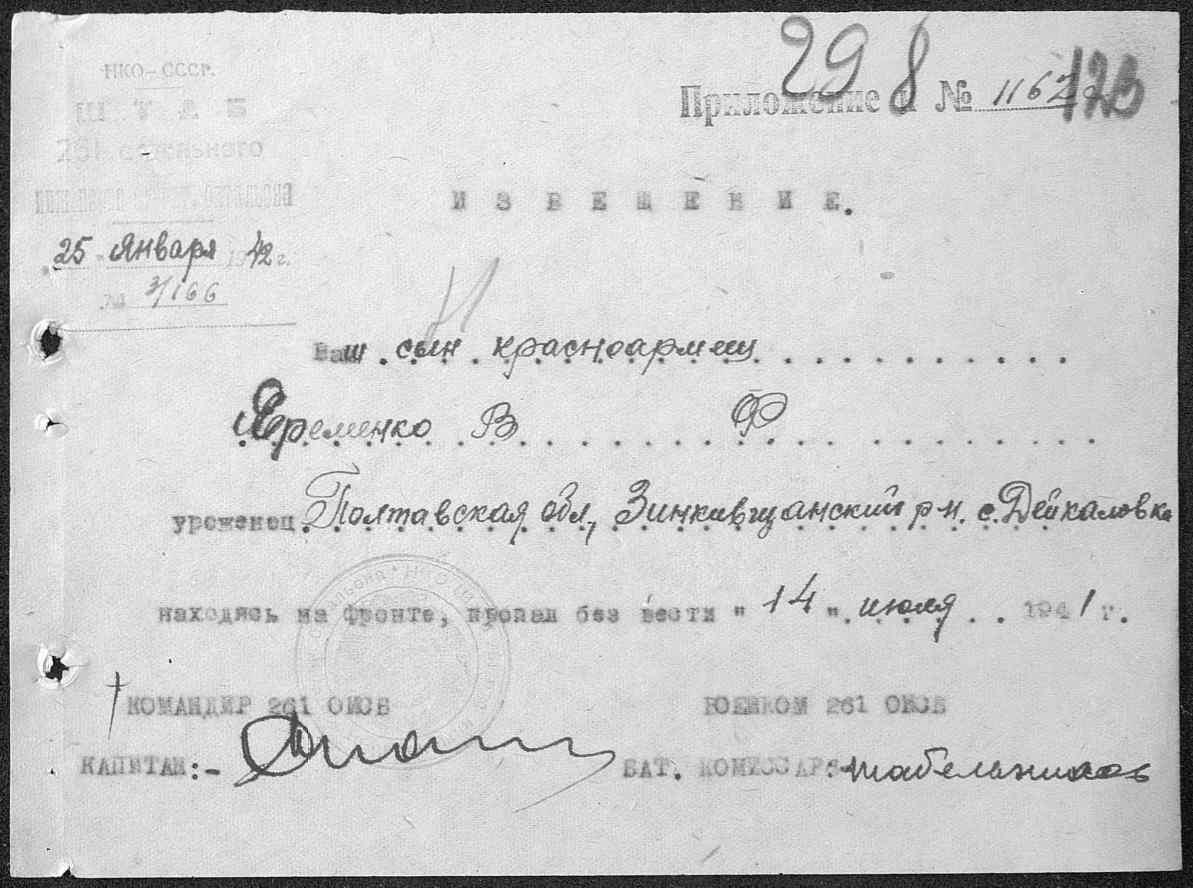 НКО-СССР.
ШТАБ
261 отдельного
"25" Января 1942 г.
№ 3/166
298
Приложение и № 1167
123
ИЗВЕЩЕНИЕ.
Ваш сын красноармеец
Яременко В Ф
уроженец Полтавская обл, Зинкивщанский р-н. с. Дейкаловка
находясь на фронте, пропал без вести "14" июля 1941 г.
КОМАНДИР 261 ОИСБ
ВОЕНКОМ 261 ОИСБ
КАПИТАН:-
БАТ. КОМИССАР:- Табельников